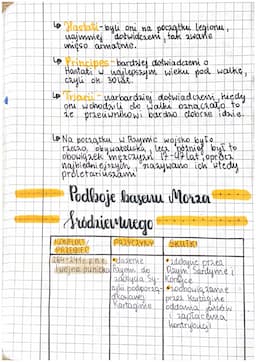 ↳ Hastati - byli oni na początku legionu,
najmniej doświadczeni, tak zwane
mięso armatnie.
↳ Principes - bardziej doświadczeni o
Hastati w najlepszym wieku pod walkę,
czyli ok. 30 lat.
↳ Triarii - najbardziej doświadczeni, kiedy
oni wchodzili do walki oznaczało to
że przeciwnikowi bardzo dobrze idzie.
↳ Na początku w Rzymie wojsko było
rzeszą obywatelską, lecz później był to
obowiązek mężczyzn 17-47 lat, oprócz
najbiedniejszych, nazywano ich wtedy
proletariuszami
Podboje basenu Morza
Śródziemnego
KONFLIKT/ PRZEBIEG
PRZYCZYNY
SKUTKI
264-241r. p.n.e.
I wojna punicka
• dążenie
Rzymu do
zdobycia Sy-
cylii podporzą-
dkowanej
Kartaginie
• zdobycie przez
Rzym Sardynię i
Korsykę
• zobowiązanie
przez Kartaginę
oddania jeńców
i zapłacenia
kontrybucji